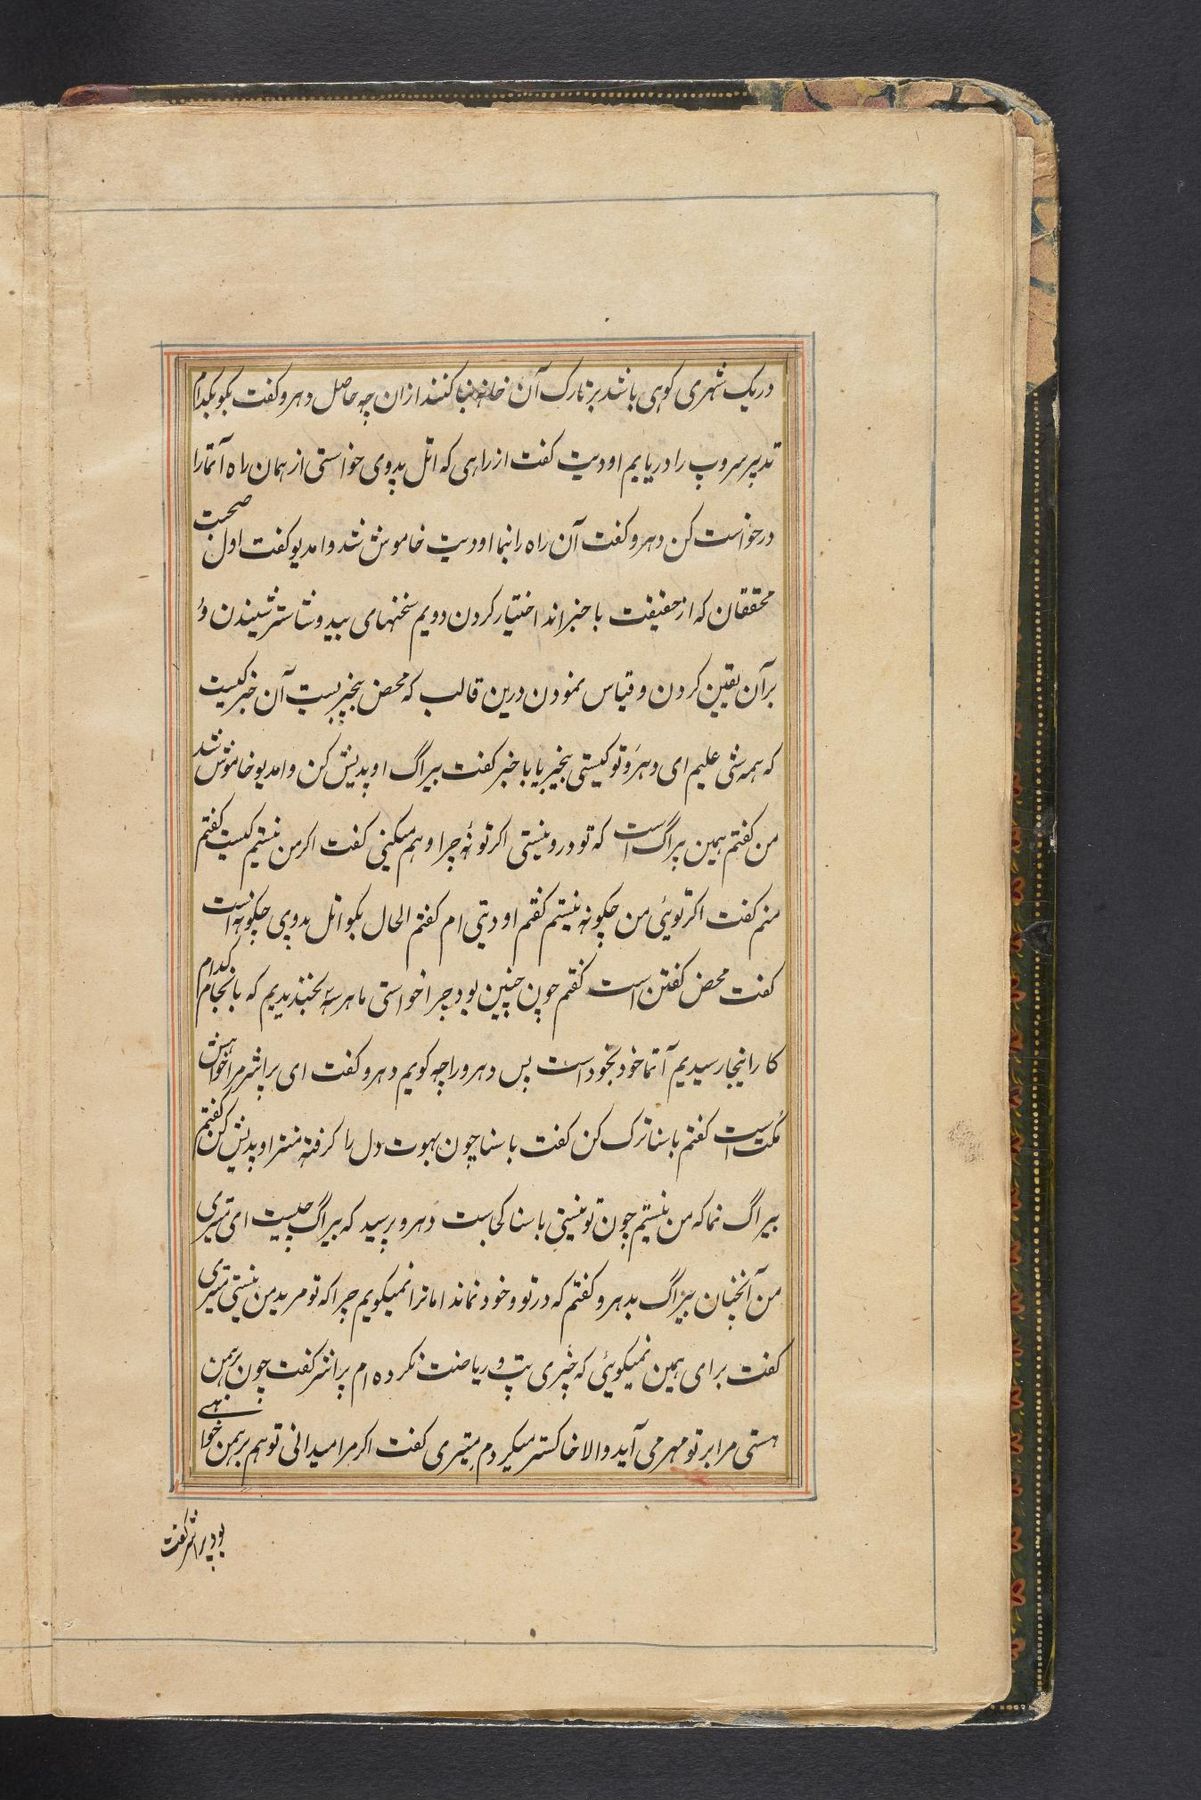 در یک شهری کوهی باشد بر تارک آن خانه بنا کنند ازان چه حاصل دهرو کفت بکو بکدام
تدبیر سروپ را دریابیم اودیت کفت از راهی که اتل پدوی خواستی از همان راه آتما را
درخواست کن دهرو کفت آن راه را بنما اودیت خاموش شد وامدیو کفت اول صحبت
محققان که از حقیقت با خبر اند اختیار کردن دویم سخنهای بید و شاستر شنیدن و
بر آن یقین کردن و قیاس نمودن درین قالب که محض بیخبریست آن خبر کیست
که همه شی علیم ای دهرو تو کیستی بیخبر یا با خبر کفت بیراگ اوپدیش کن وامدیو خاموش شد
من کفتم همین بیراگ است که تو درو نیستی اکر توئه چرا وهم میکنی کفت اکر من نیستم کیست کفتم
منم کفت اکر توئی من چکونه نیستم کفتم اودیتی ام کفتم الحال بکو اتل پدوی چکونه است
کفت محض کفتن است کفتم چون چنین بود چرا خواستی ما هر سه بخندیدیم که بانجام کدام
کار اینجا رسیدیم آتما خود بخود است پس دهرو را چه کویم دهرو کفت ای پراشر مرا خواهش
مکت است کفتم باسنا ترک کن کفت باسنا چون بهوت دل را کرفته منتر اوپدیش کن کفتم
بیراگ نما که من نیستم چون تو نیستی باسنا کجاست دهرو پرسید که بیراگ چیست ای میتری
من آنچنان بیراگ بدهرو کفتم که در تو وخود نماند اما ترا نمیکویم چرا که تو مرید من نیستی میتری
کفت برای همین نمیکوئی که چیزی تپ و ریاضت نکرده ام پراشر کفت چون برهمن
هستی مرا بر تو مهر می آید والا خاکستر میکردم میتری کفت اکر مرا میدانی تو هم برهمن خواهی
بود پراشر کفت